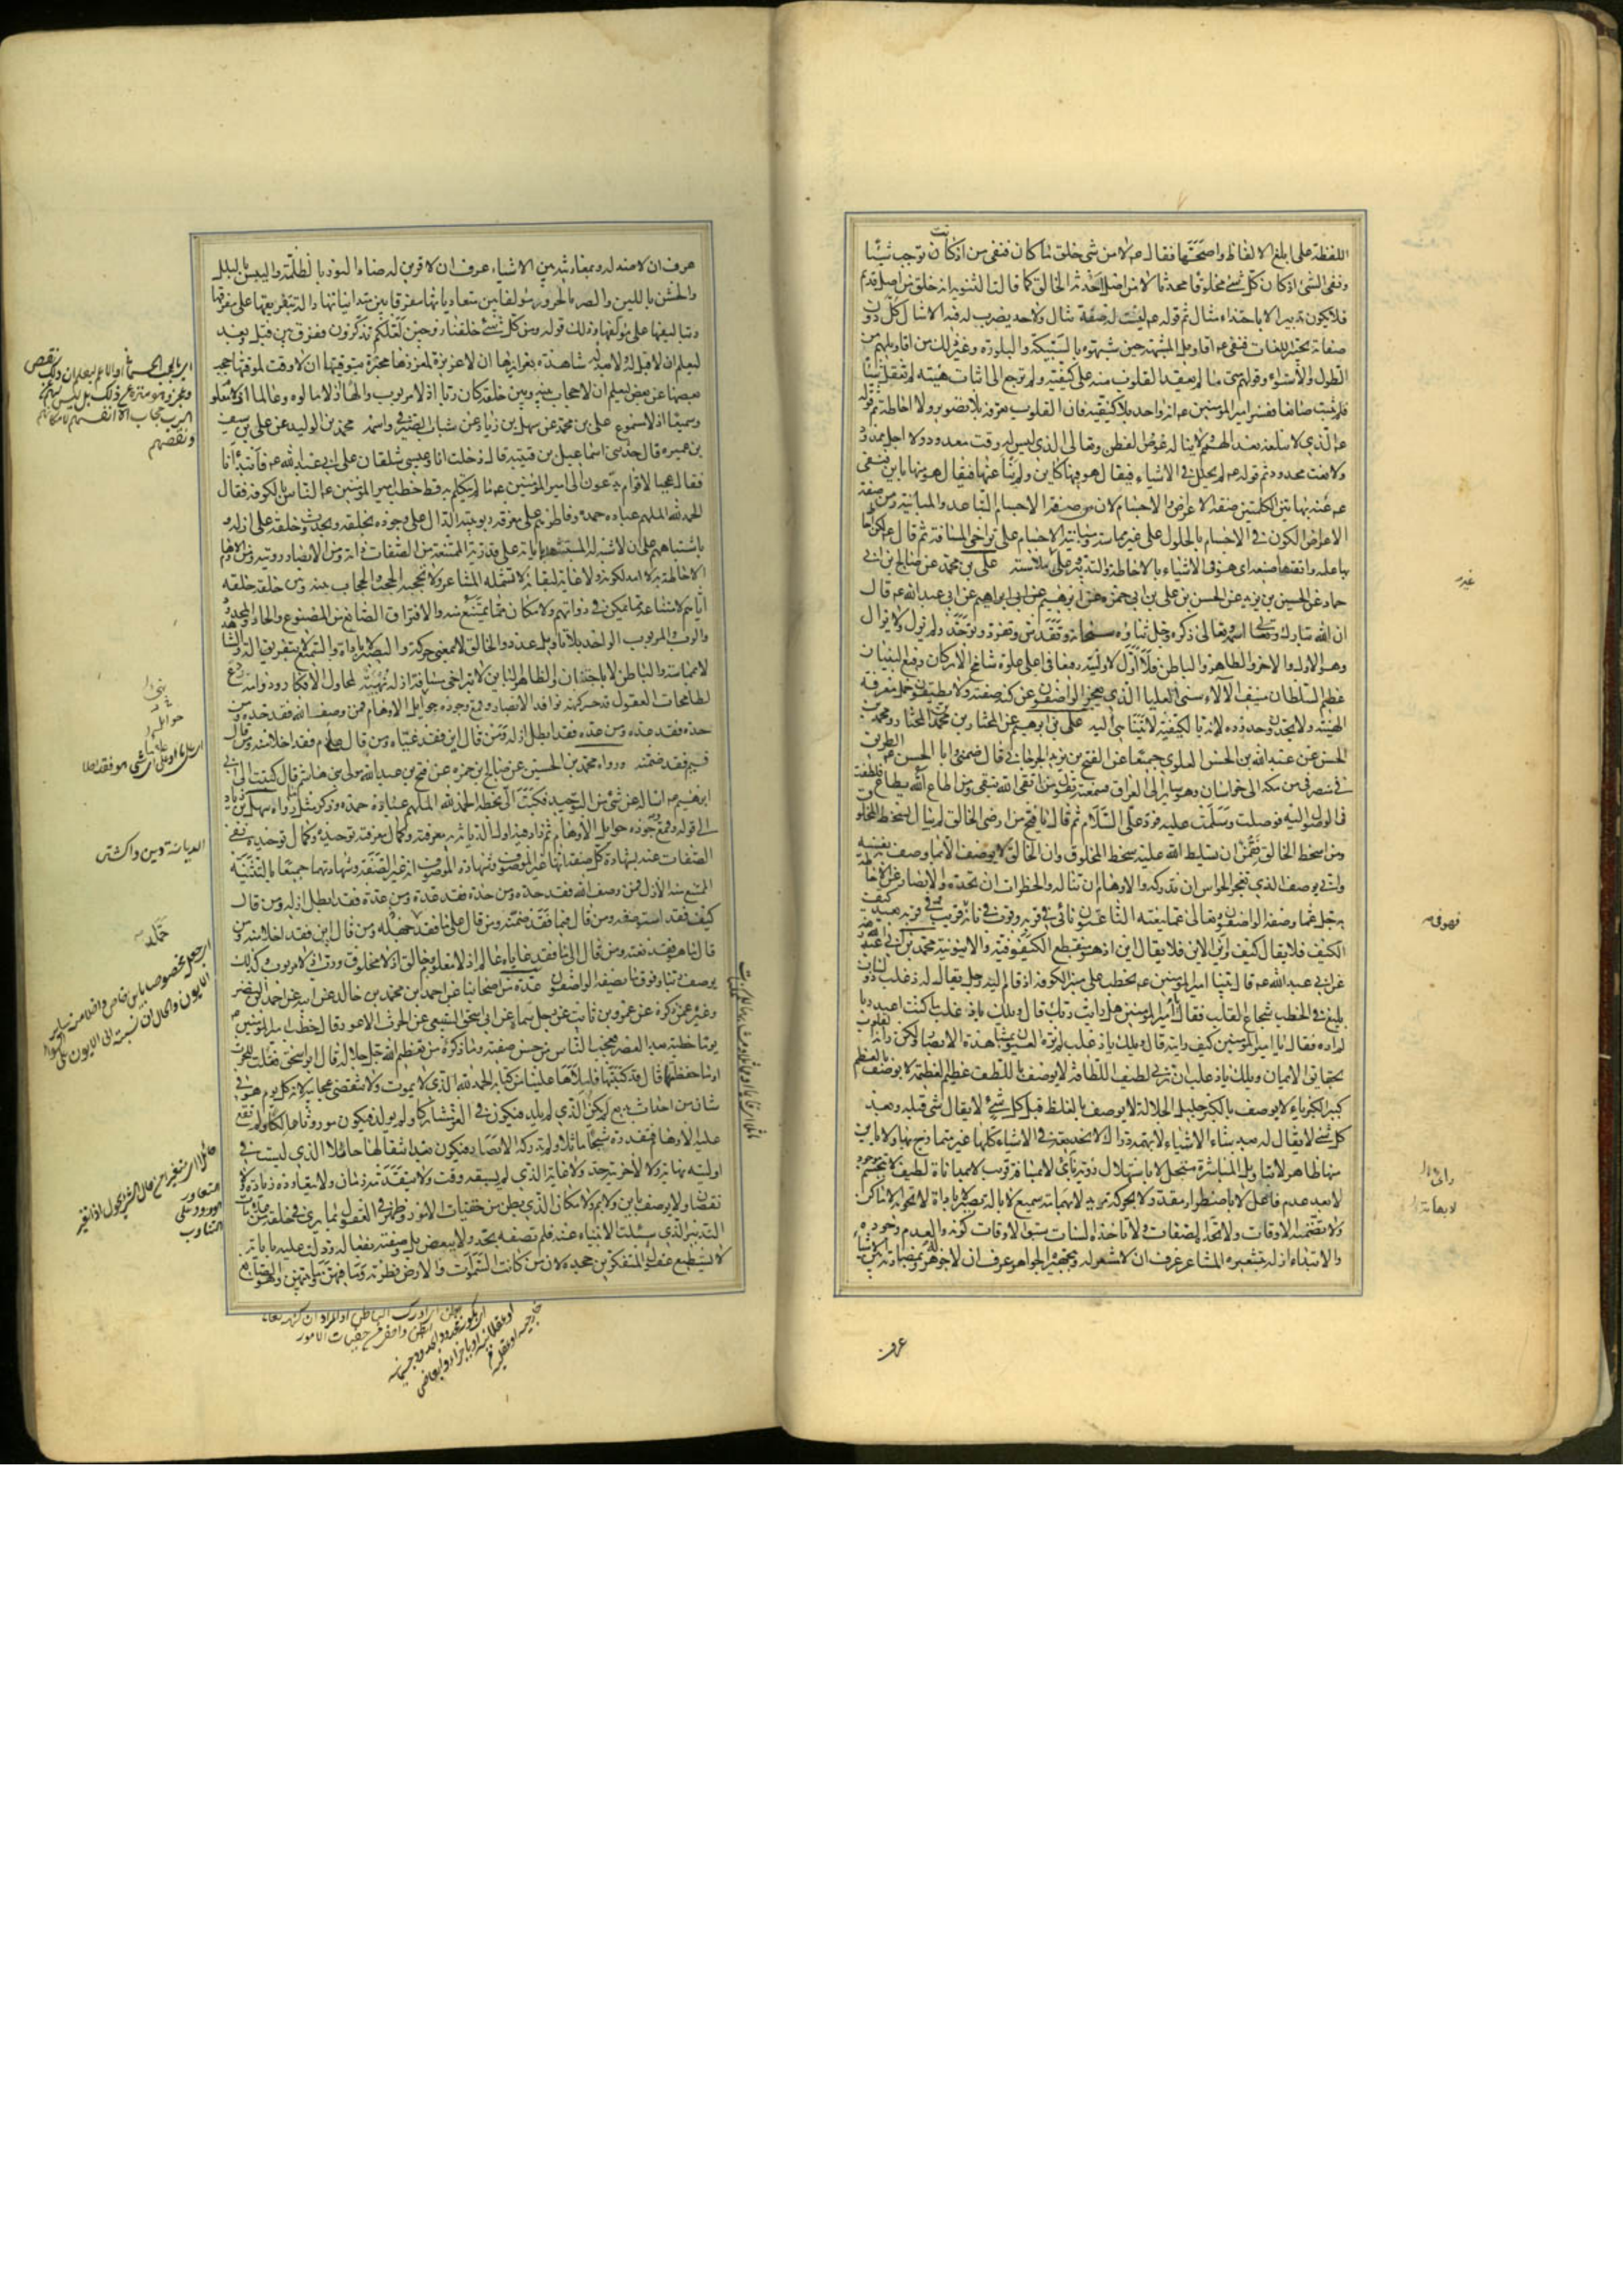 اللفظة على ابلغ الالفاظ واصحتها فقال عم لا من شئ خلق ما كان فنفى من اذ كان توجب شيئا
ونفى الشئ اذ كان كل شئ مخلوقا محدثا لا من اصل احدثه الخالق كما قالت الثنوية انه خلق من اصل قديم
فلا يكون تدبير الا باحتذاء مثال ثم قوله عم ليست له صفة تنال ولا حد يضرب له فيه الامثال كل دون
صفاته تحبير اللغات فنفى عم اقاويل المشبهة حين شبهوه بالسبيكة والبلورة وغير ذلك من اقاويلهم من
الطول والاستواء وقولهم متى ما لم يعقد القلوب منه على كيفية ولم ترجع الى اثبات هيئة لم تعقل شيئا
فلم تثبت صانعا ففسر امير المؤمنين عم انه واحد بلا كيفية فان القلوب تعرفه بلا تصوير ولا احاطة ثم قوله
عم الذي لا يبلغه بعد الهمم ولا يناله غوص الفطن وتعالى الذي ليس له وقت معدود ولا اجل ممدود
ولا نعت محدود ثم قوله عم لم يحلل في الاشياء فيقال هو فيها كاين ولم ينأ عنها فيقال هو منها باين فنفى
عم عنه بهاتين الكلمتين صفة الاعراض والاجسام لان من صفة الاجسام التباعد والمباينة ومن صفة
الاعراض الكون في الاجسام بالحلول على غير مماسة ومباينة الاجسام على تراخي المسافة ثم قال عم لكن احاط
بها علمه واتقنها صنعه اى هو في الاشياء بالاحاطة والتدبير وعلى غير ملامسة على بن محمد عن صالح بن ابى
حماد عن الحسين بن يزيد عن الحسن بن على بن ابى حمزه عن ابرهيم عن ابى عبد الله عم قال
ان الله تبارك اسمه وتعالى ذكره وجل ثناؤه سبحانه وتقدس وتفرد وتوحد ولم يزل ولا يزال
وهو الاول والاخر والظاهر والباطن فلا اول لاوليته رفيعا في اعلى علوه شامخ الاركان رفيع البنيان
عظيم السلطان منيف الآلاء سنى العليا الذي يعجز الواصفون عن كنه صفته ولا يطيقون حمل معرفة
الهيته ولا يحدون حدوده لانه بالكيفية لا يتناهى اليه على بن ابرهيم عن المختار بن محمد المختار ومحمد بن
الحسن عن عبد الله بن الحسن العلوى جميعا عن الفتح بن يزيد الجرجانى قال ضمنى وابا الحسن عم الطريق
في منصرفى من مكة الى خراسان وهو ساير الى العراق فسمعته يقول من اتقى الله يتقى ومن اطاع الله يطاع فتلطفت
في الوصول اليه فوصلت وسلمت عليه فرد على السلام ثم قال يا فتح من ارضى الخالق لم يبال بسخط المخلوق
ومن اسخط الخالق فقمن ان يسلط الله عليه سخط المخلوق وان الخالق لا يوصف الا بما وصف به نفسه
وانى يوصف الذي تعجز الحواس ان تدركه والاوهام ان تناله والخطرات ان تحده والابصار عن الاحاطة
به جل عما وصفه الواصفون وتعالى عما ينعته الناعتون نائى في قربه وقرب في نأيه فهو في نأيه قريب وفي قربه بعيد كيف
الكيف فلا يقال كيف واين الاين فلا يقال اين اذ هو منقطع الكيفوفية والاينونية محمد بن ابى عبد الله رفعه
عن ابى عبد الله عم قال بينا امير المؤمنين عم يخطب على منبر الكوفة اذ قام اليه رجل يقال له ذعلب ذو لسان
بليغ في الخطب شجاع القلب فقال يا امير المؤمنين هل رايت ربك قال ويلك يا ذعلب ما كنت اعبد ربا
لم اره فقال يا امير المؤمنين كيف رايته قال ويلك يا ذعلب لم تره العيون بمشاهدة الابصار ولكن راته القلوب
بحقايق الايمان ويلك يا ذعلب ان ربى لطيف اللطافة لا يوصف باللطف عظيم العظمة لا يوصف بالعظم
كبير الكبرياء لا يوصف بالكبر جليل الجلالة لا يوصف بالغلظ قبل كل شئ لا يقال شئ قبله وبعد
كل شئ لا يقال له بعد شاء الاشياء لا بهمة دراك لا بخديعة في الاشياء كلها غير متمازج بها ولا باين
منها ظاهر لا بتاويل المباشرة متجل لا باستهلال رؤية نائى لا بمسافة قريب لا بمداناة لطيف لا بتجسم موجود
لا بعد عدم فاعل لا باضطرار مقدر لا بحركة مريد لا بهمامة سميع لا بآلة بصير لا باداة لا تحويه الاماكن
ولا تضمنه الاوقات ولا تحده الصفات ولا تاخذه السنات سبق الاوقات كونه والعدم وجوده
والابتداء ازله بتشعيره المشاعر عرف ان لا مشعر له وبتجهيره الجواهر عرف ان لا جوهر له وبمضادته بين الاشياء
عرف
غير
فهو في
عرف ان لا ضد له وبمقارنته بين الاشياء عرف ان لا قرين له ضاد النور بالظلمة واليبس بالبلل
والخشن باللين والصرد بالحرور مؤلف بين متعادياتها مفرق بين متدانياتها دالة بتفريقها على مفرقها
وبتاليفها على مؤلفها وذلك قوله ومن كل شئ خلقنا زوجين لعلكم تذكرون ففرق بين قبل وبعد
ليعلم ان لا قبل له ولا بعد له شاهدة بغرايزها ان لا غريزة لمغرزها مخبرة بتوقيتها ان لا وقت لموقتها حجب
بعضها عن بعض ليعلم ان لا حجاب بينه وبين خلقه كان ربا اذ لا مربوب والها اذ لا مالوه وعالما اذ لا معلوم
وسميعا اذ لا مسموع على بن محمد عن سهل بن زياد عن شباب الصيرفى واسمه محمد بن الوليد عن على بن سيف
بن عميره قال حدثنى اسماعيل بن قتيبة قال دخلت انا وعيسى شلقان على ابى عبد الله عم فابتدأنا
فقال عجبا لاقوام يدعون على امير المؤمنين عم ما لم يتكلم به قط خطب امير المؤمنين عم الناس بالكوفه فقال
الحمد لله الملهم عباده حمده وفاطرهم على معرفة ربوبيته الدال على وجوده بخلقه وبحدوث خلقه على ازله و
باشتباههم على ان لا شبه له المستشهد باياته على قدرته الممتنعة من الصفات ذاته ومن الابصار رويته ومن الاوهام
الاحاطة به لا امد لكونه ولا غاية لبقائه لا تشمله المشاعر ولا تحجبه الحجب والحجاب بينه وبين خلقه خلقه
اياهم لامتناعه مما يمكن في ذواتهم ولامكان مما يمتنع منه ولافتراق الصانع من المصنوع والحاد من المحدود
والرب والمربوب الواحد بلا تاويل عدد والخالق لا بمعنى حركة والبصير لا باداة والسميع لا بتفريق آلة والشاهد
لا بمماسة والباطن لا باجتنان والظاهر الباين لا بتراخى مسافة ازله نهية لمجاول الافكار ودوامه ردع
لطامحات العقول قد حسر كنهه نوافذ الابصار وقمع وجوده جوايل الاوهام فمن وصف الله فقد حده ومن
حده فقد عده ومن عده فقد ابطل ازله ومن قال اين فقد غياه ومن قال علام فقد اخلا منه ومن قال
فيم فقد ضمنه ورواه محمد بن الحسين عن صالح بن حمزه عن فتح بن عبد الله مولى بنى هاشم قال كتبت الى ابى
ابرهيم عم اساله عن شئ من التوحيد فكتب الى بخطه الحمد لله الملهم عباده حمده وذكر مثل ما رواه سهل بن زياد
الى قوله وقمع وجوده جوايل الاوهام ثم زاد فيه اول الديانة به معرفته وكمال معرفته توحيده وكمال توحيده نفى
الصفات عنه بشهادة كل صفة انها غير الموصوف وشهادة الموصوف انه غير الصفة وشهادتهما جميعا بالتثنية
الممتنع منه الازل فمن وصف الله فقد حده ومن حده فقد عده ومن عده فقد ابطل ازله ومن قال
كيف فقد استوصفه ومن قال فيما فقد ضمنه ومن قال على ما فقد جهله ومن قال اين فقد اخلا منه ومن
قال ما هو فقد نعته ومن قال الى ما فقد غاياه عالم اذ لا معلوم وخالق اذ لا مخلوق ورب اذ لا مربوب وكذلك
يوصف ربنا وفوق ما يصفه الواصفون عدة من اصحابنا عن احمد بن محمد بن خالد عن ابيه عن احمد بن النضر
وغيره عمن ذكره عن عمرو بن ثابت عن رجل سماه عن ابى اسحق السبيعى عن الحرث الاعور قال خطب امير المؤمنين عم
يوما خطبة بعد العصر فعجب الناس من حسن صفته وما ذكره من تعظيم الله جل جلاله قال ابو اسحق فقلت للحرث
او ما حفظتها قال قد كتبتها فاملاها علينا من كتابه الحمد لله الذي لا يموت ولا تنقضى عجايبه لانه كل يوم هو في
شان من احداث بديع لم يكن الذي لم يلد فيكون في العز مشاركا ولم يولد فيكون موروثا هالكا ولم تقع
عليه الاوهام فتقدره شبحا ماثلا ولم تدركه الابصار فيكون بعد انتقالها حائلا الذي ليست في
اوليته نهاية ولا لاخريته حد ولا غاية الذي لم يسبقه وقت ولا يتقدمه زمان ولا يتعاوره زيادة ولا
نقصان ولا يوصف باين ولا بم ولا مكان الذي بطن من خفيات الامور وظهر في العقول بما يرى في خلقه من علامات
التدبير الذي سئلت الانبياء عنه فلم تصفه بحد ولا ببعض بل وصفته بفعاله ودلت عليه باياته
لا تستطيع عقول المتفكرين جحده لان من كانت السموات والارض فطرته وما فيهن وما بينهن وهو الصانع